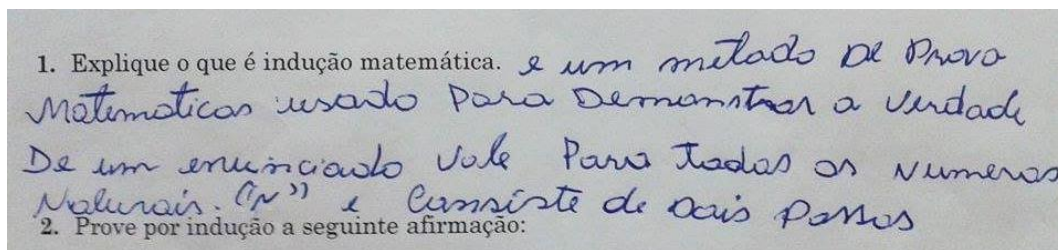 1. Explique o que é indução matemática. e um metado De Prova
Matematicas usado Para Demonstrar a Verdade
De um enunciado Vale Para todos os Numeros
Naturais. "N" e Consiste de Dois Passos
2. Prove por indução a seguinte afirmação: